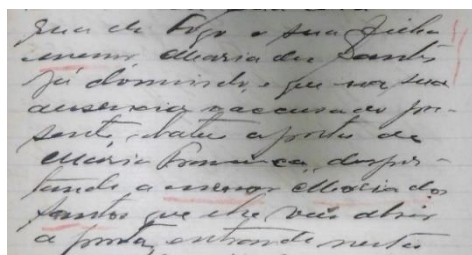 sua filha
menor Maria dos Santos
já dormindo, e que na sua
ausencia o accusado pre-
sente, bateu a porta de
Maria Francisca, desper-
tando a menor Maria dos
Santos que lhe veio abrir
a porta, entrando nesta